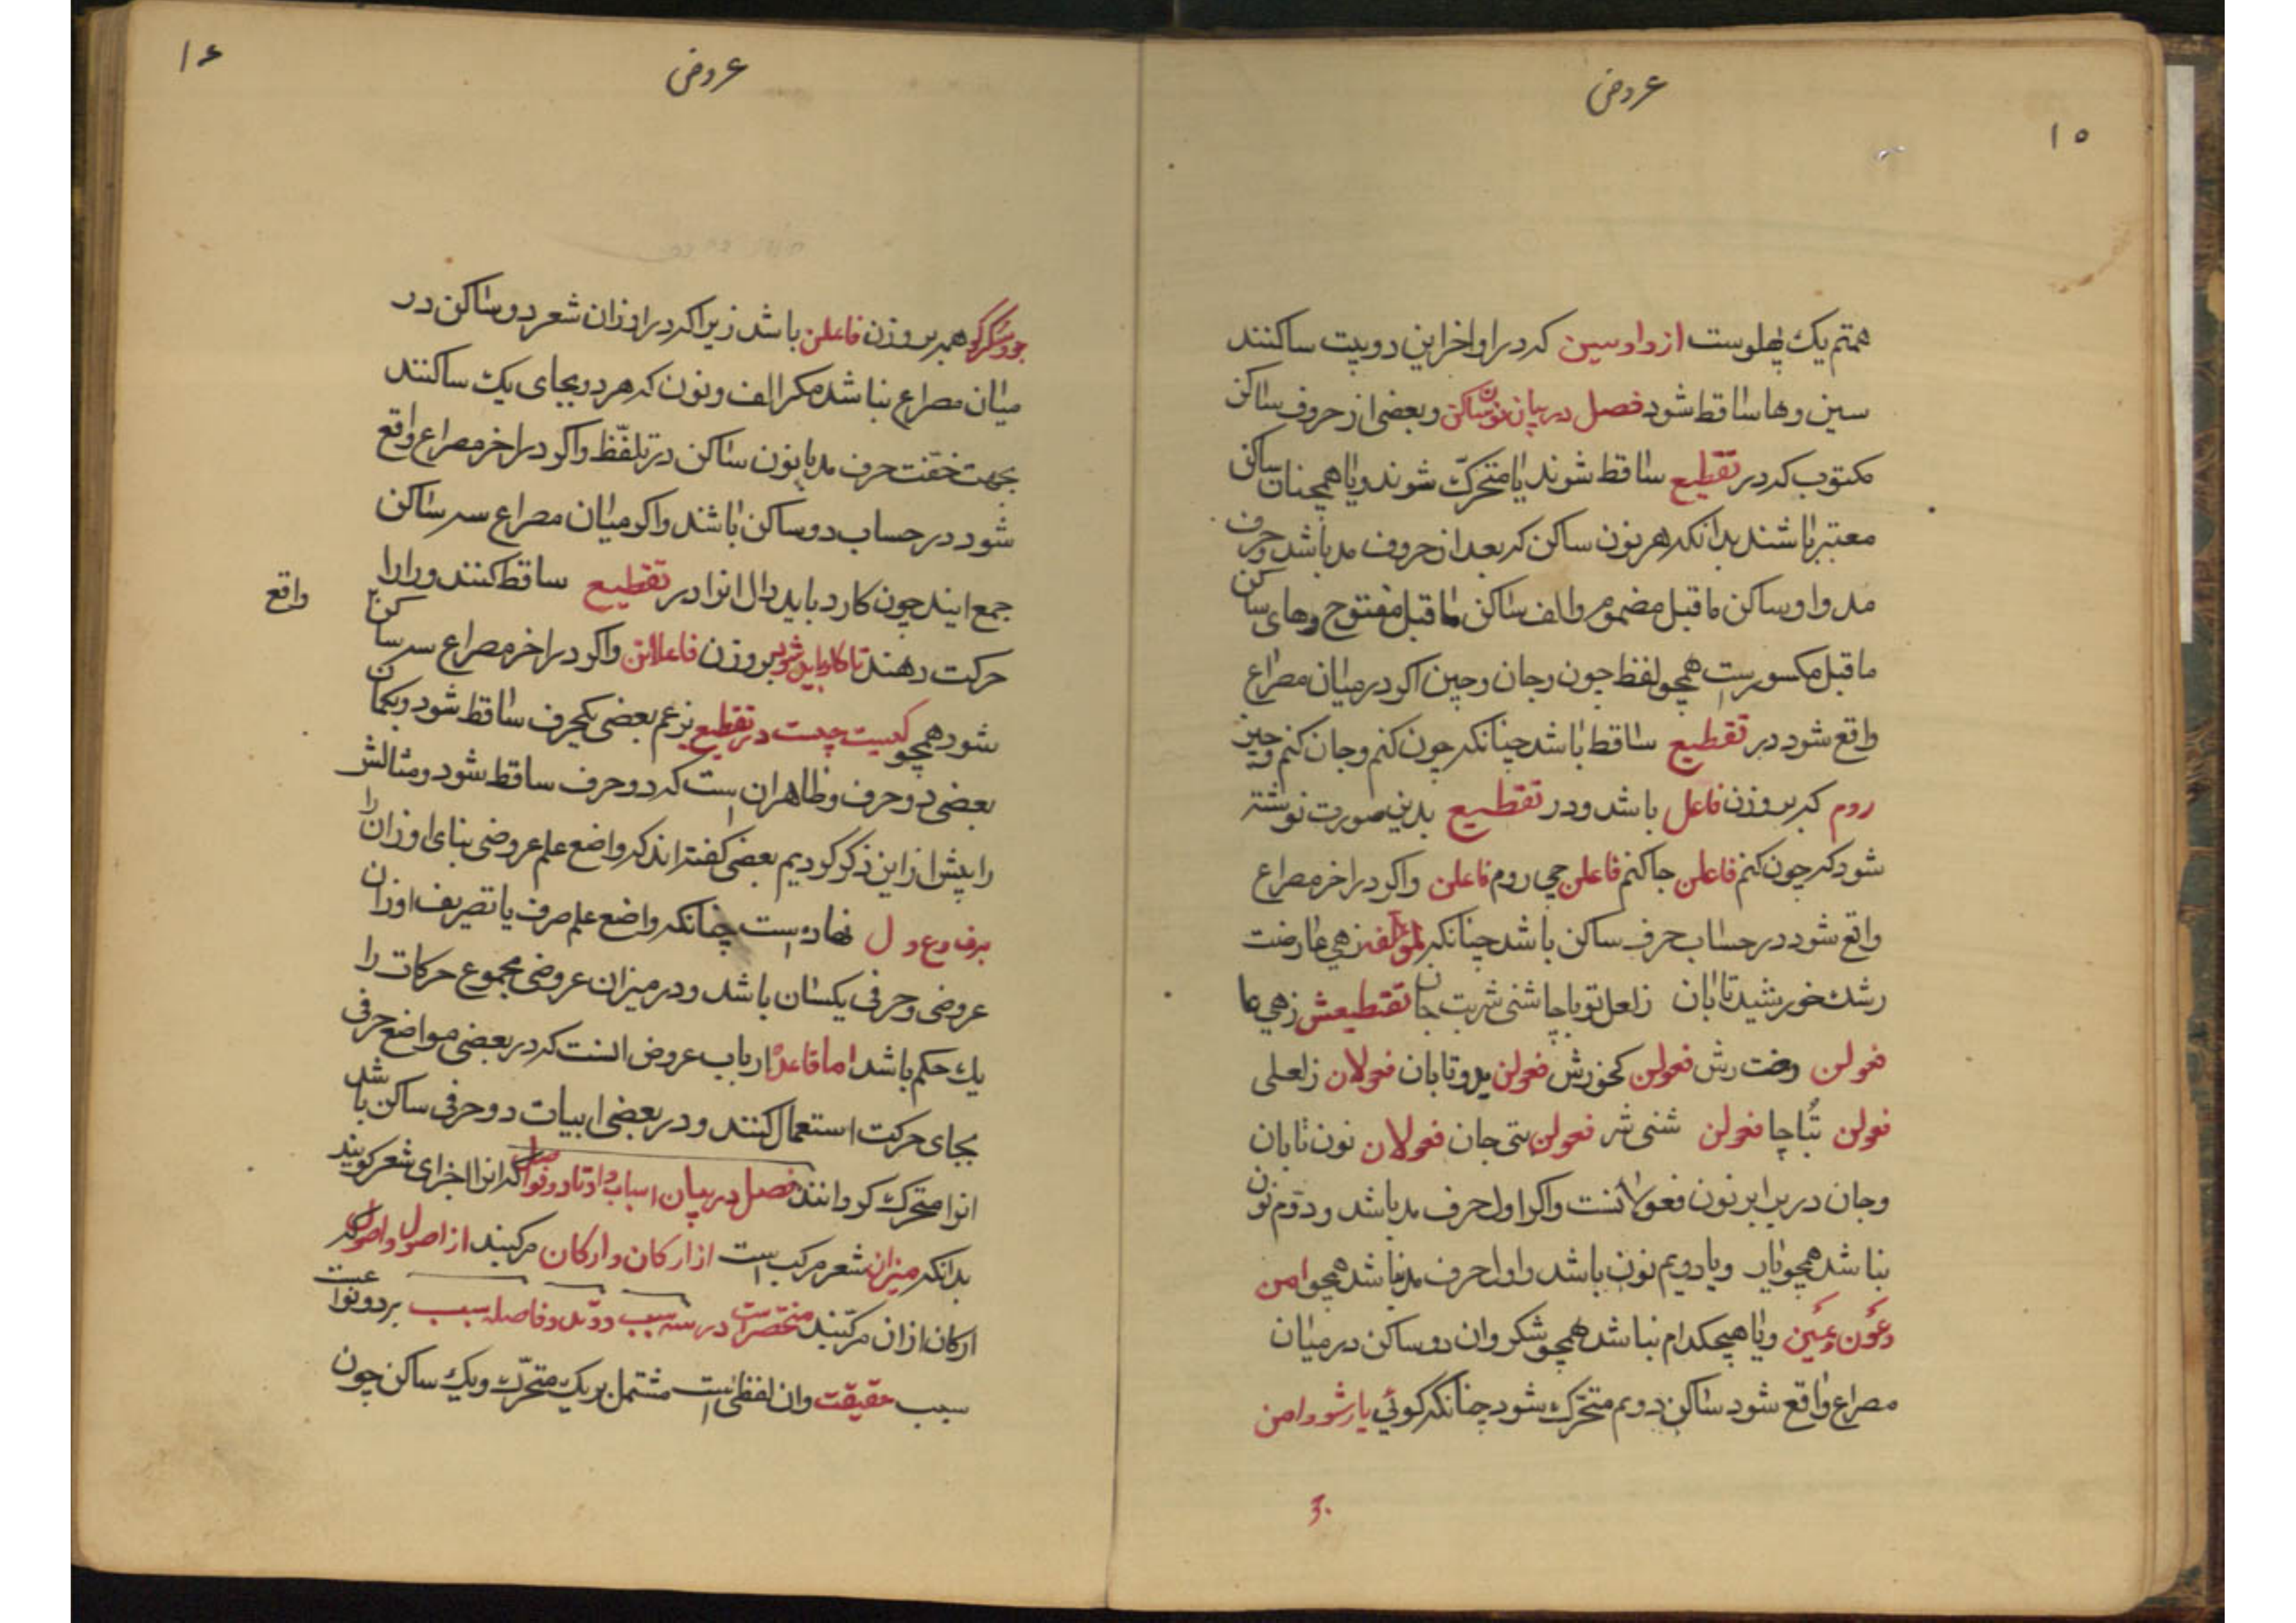 عروض
۱۵
همتم یک پهلوست از وادسین که در اواخر این دو بیت ساکنند
سین و ها ساقط شود فصل در بیان نون ساکن و بعضی از حروف ساکن
مکتوب که در تقطیع ساقط شوند یا متحرک شوند و یا همچنان ساکن
معتبر باشند بدانکه هر نون ساکن که بعد از حروف مد باشد و حرف
مد واو ساکن ماقبل مضموم و الف ساکن ماقبل مفتوح و های ساکن
ماقبل مکسورست همچو لفظ چون و جان و چین اکر در میان مصراع
واقع شود در تقطیع ساقط باشد چنانکه چون کنم و جان کنم و چین
روم که بر وزن فاعل باشد و در تقطیع بدین صورت نوشته
شود که چون کنم فاعلن جا کنم فاعلن چی روم فاعلن واکر در اخر مصراع
واقع شود در حساب حرف ساکن باشد چنانکه لمؤلفه زهی عارضت
رشک خورشید تابان زلعل تو با چاشنی شربت جان تقطیعش زهی عا
فعولن رضت رش فعولن کخورش فعولن یدو تابان فعولان زلعلی
فعولن تُباچا فعولن شنی شر فعولن بتی جان فعولان نون تابان
و جان در برابر نون فعولانست واکر اول حرف مد باشد و دوم نون
نباشد همچو یار و یا دویم نون باشد و اول حرف مد نباشد همچو امن
وعَون وعَین و یا هیچکدام نباشد همچو شکر وان دو ساکن در میان
مصراع واقع شود ساکن دویم متحرک شود چنانکه کوئی یار شو و امن
عروض
۱۶
همه بر وزن فاعلن باشد زیرا که در اوزان شعر دو ساکن در
میان مصراع نباشد مکر الف و نون که هر دو بجای یک ساکنند
بجهت خفت حرف مد با نون ساکن در تلفّظ واکر در اخر مصراع واقع
شود در حساب دو ساکن باشند واکر میان مصراع سه ساکن
جمع ایند چون کارد باید دال انرا در تقطیع ساقط کنند و را را
واقع
حرکت دهند تا بر وزن فاعلاتن واکر در اخر مصراع سه ساکن
شود همچو کیست چیست در تقطیع بزعم بعضی یکحرف ساقط شود و بکمان
بعضی دو حرف و ظاهر ان است که دو حرف ساقط شود و مثالش
را پیش از این ذکر کردیم بعضی کفته اند که واضع علم عروض بنای اوزان را
برف و ع و ل نهاده است چنانکه واضع علم صرف یا تصریف اوزان
عروضی و حرفی یکسان باشد و در میزان عروضی مجموع حرکات را
یک حکم باشد اما قاعدهٔ ارباب عروض انست که در بعضی مواضع حرفی
بجای حرکت استعمال کنند و در بعضی ابیات دو حرفی ساکن باشد
انرا متحرک کردانند فصل در بیان اسباب و اوتاد و فواصل که انرا اجزای شعر کویند
بدانکه میزان شعر مرکب است از ارکان و ارکان مرکبند از اصول و اصولی که
ارکان از ان مرکبند منحصر است در سه سبب و وتد و فاصله سبب بر دو نوع است
سبب خفیفت وان لفظی است مشتمل بر یک متحرّک و یک ساکن چون